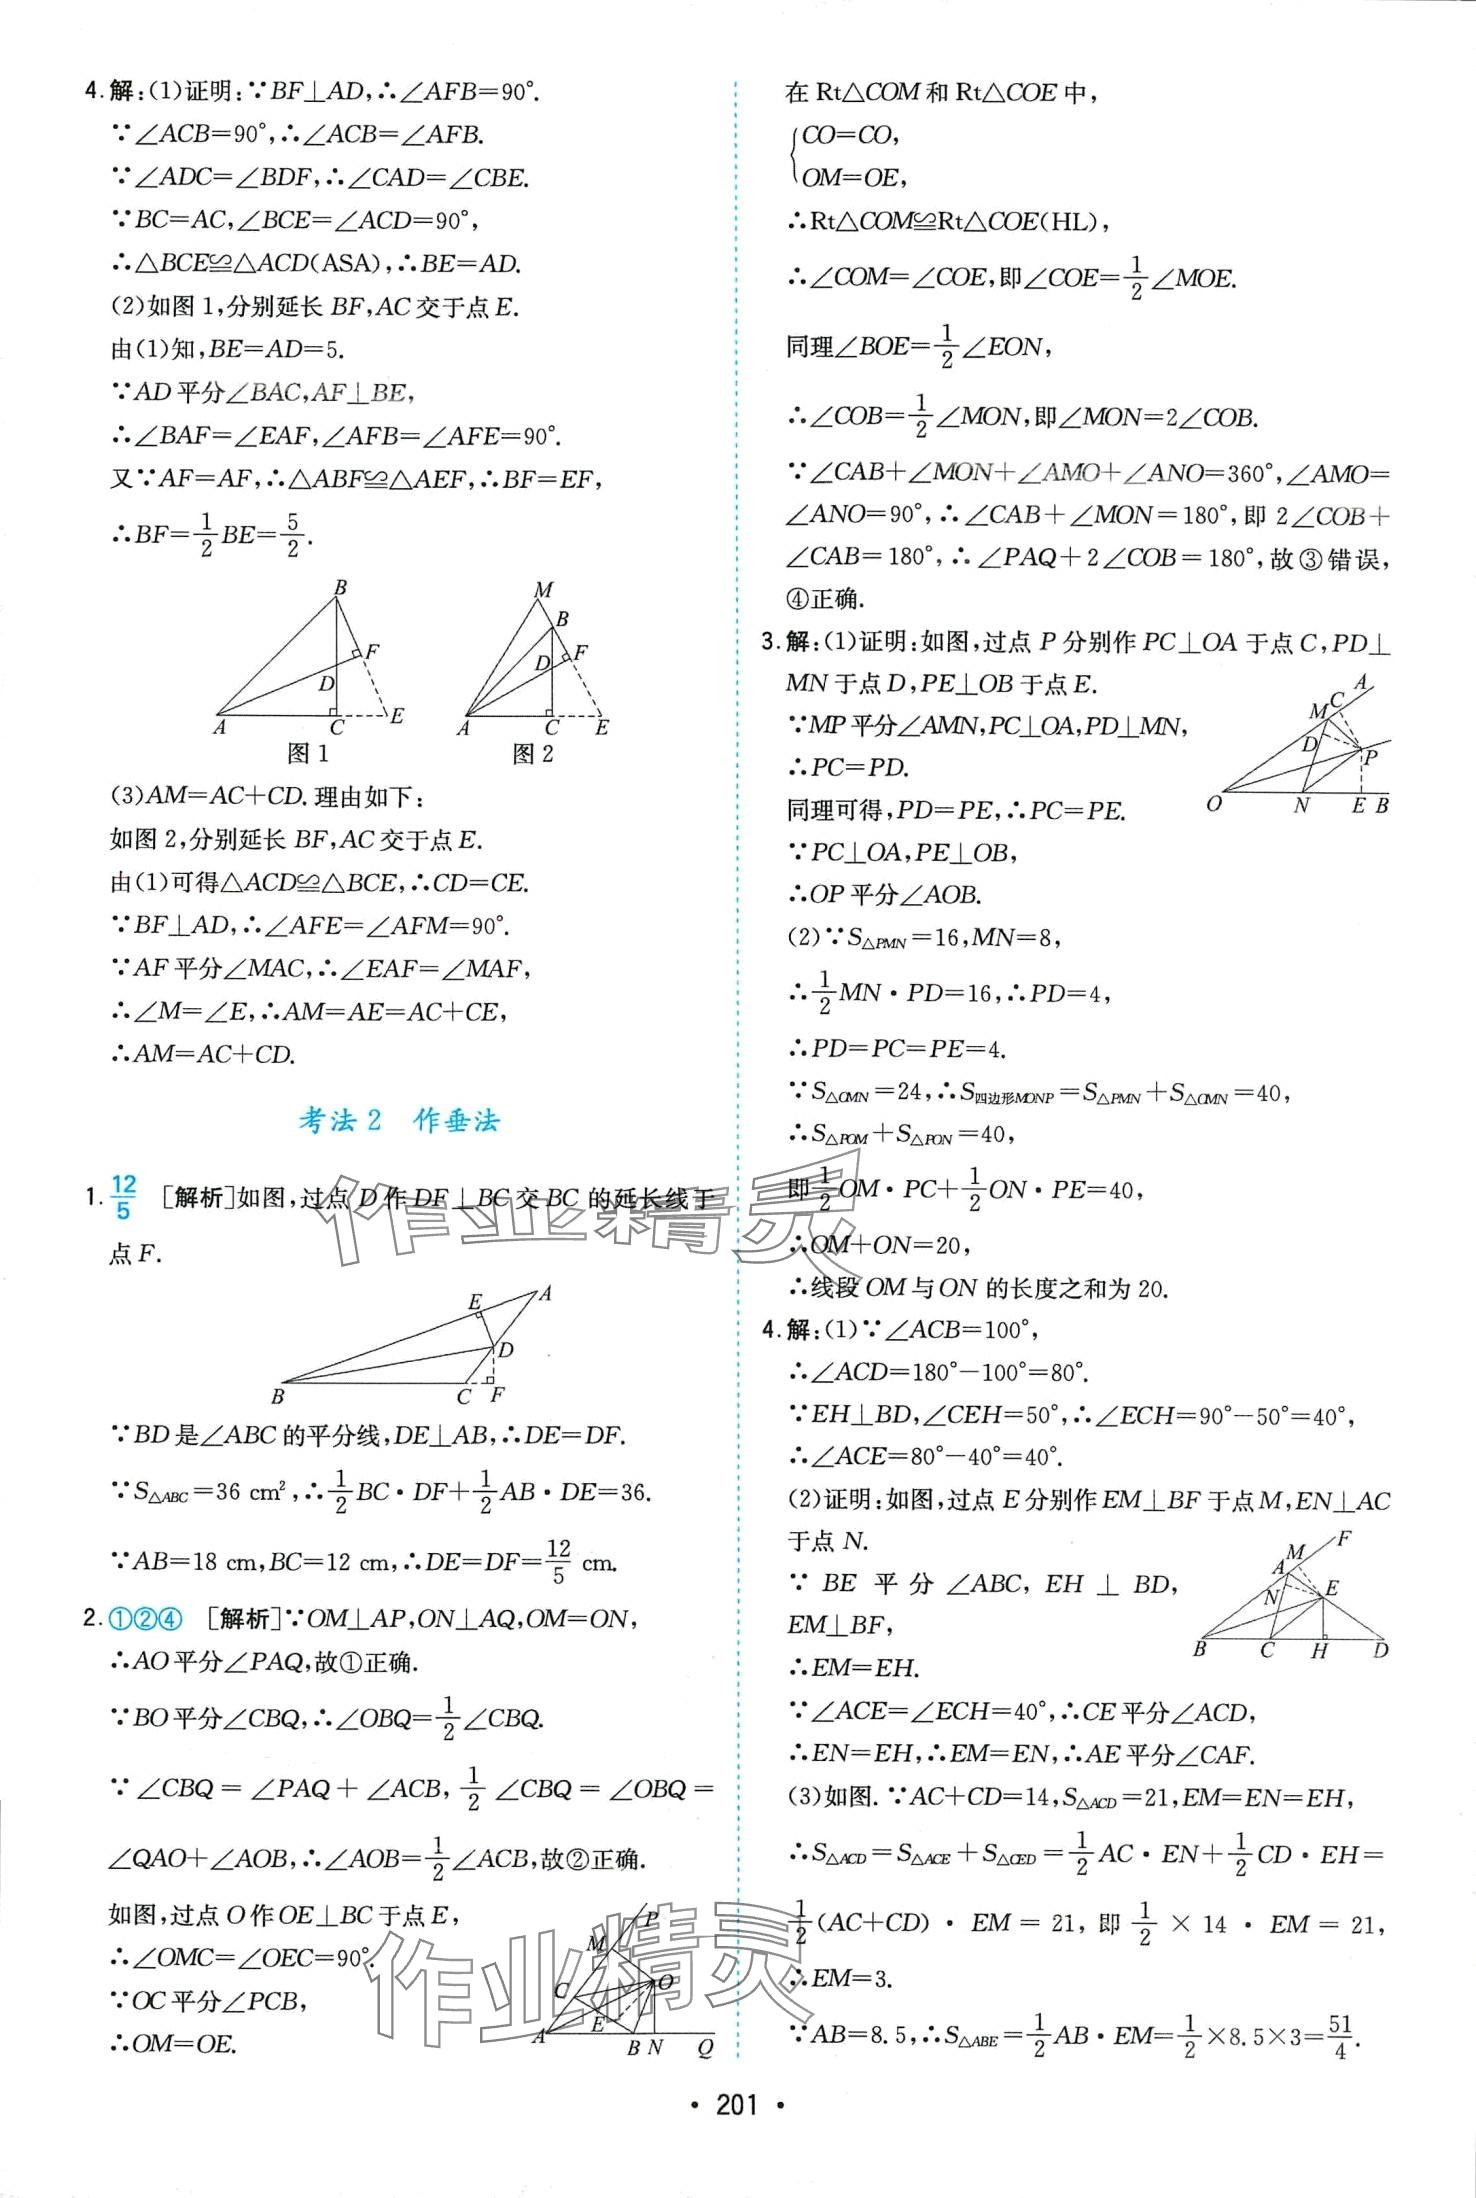 4.解:(1)证明:∵BF⊥AD,∴∠AFB=90°.
∵∠ACB=90°,∴∠ACB=∠AFB.
∵∠ADC=∠BDF,∴∠CAD=∠CBE.
∵BC=AC,∠BCE=∠ACD=90°,
∴△BCE≌△ACD(ASA),∴BE=AD.
(2)如图1,分别延长BF,AC交于点E.
由(1)知,BE=AD=5.
∵AD平分∠BAC,AF⊥BE,
∴∠BAF=∠EAF,∠AFB=∠AFE=90°.
又∵AF=AF,∴△ABF≌△AEF,∴BF=EF,
∴BF=1/2BE=5/2.
B
F
D
A
C
E
图1
M
B
F
D
A
C
E
图2
(3)AM=AC+CD.理由如下:
如图2,分别延长BF,AC交于点E.
由(1)可得△ACD≌△BCE,∴CD=CE.
∵BF⊥AD,∴∠AFE=∠AFM=90°.
∵AF平分∠MAC,∴∠EAF=∠MAF,
∴∠M=∠E,∴AM=AE=AC+CE,
∴AM=AC+CD.
考法2 作垂法
1.12/5 [解析]如图,过点D作DF⊥BC交BC的延长线于
点F.
E
A
D
B
C
F
∵BD是∠ABC的平分线,DE⊥AB,∴DE=DF.
∵S△ABC=36 cm²,∴1/2BC·DF+1/2AB·DE=36.
∵AB=18 cm,BC=12 cm,∴DE=DF=12/5 cm.
2.①②④ [解析]∵OM⊥AP,ON⊥AQ,OM=ON,
∴AO平分∠PAQ,故①正确.
∵BO平分∠CBQ,∴∠OBQ=1/2∠CBQ.
∵∠CBQ=∠PAQ+∠ACB,1/2∠CBQ=∠OBQ=
∠QAO+∠AOB,∴∠AOB=1/2∠ACB,故②正确.
如图,过点O作OE⊥BC于点E,
∴∠OMC=∠OEC=90°.
∵OC平分∠PCB,
∴OM=OE.
P
M
O
C
E
A
B
N
Q
在Rt△COM和Rt△COE中,
CO=CO,
OM=OE,
∴Rt△COM≌Rt△COE(HL),
∴∠COM=∠COE,即∠COE=1/2∠MOE.
同理∠BOE=1/2∠EON,
∴∠COB=1/2∠MON,即∠MON=2∠COB.
∵∠CAB+∠MON+∠AMO+∠ANO=360°,∠AMO=
∠ANO=90°,∴∠CAB+∠MON=180°,即2∠COB+
∠CAB=180°,∴∠PAQ+2∠COB=180°,故③错误,
④正确.
3.解:(1)证明:如图,过点P分别作PC⊥OA于点C,PD⊥
MN于点D,PE⊥OB于点E.
∵MP平分∠AMN,PC⊥OA,PD⊥MN,
∴PC=PD.
同理可得,PD=PE,∴PC=PE.
∵PC⊥OA,PE⊥OB,
∴OP平分∠AOB.
A
C
M
D
P
O
N
E
B
(2)∵S△PMN=16,MN=8,
∴1/2MN·PD=16,∴PD=4,
∴PD=PC=PE=4.
∵S△OMN=24,∴S四边形MONP=S△PMN+S△OMN=40,
∴S△POM+S△PON=40,
即1/2OM·PC+1/2ON·PE=40,
∴OM+ON=20,
∴线段OM与ON的长度之和为20.
4.解:(1)∵∠ACB=100°,
∴∠ACD=180°-100°=80°.
∵EH⊥BD,∠CEH=50°,∴∠ECH=90°-50°=40°,
∴∠ACE=80°-40°=40°.
(2)证明:如图,过点E分别作EM⊥BF于点M,EN⊥AC
于点N.
∵BE平分∠ABC,EH⊥BD,
EM⊥BF,
∴EM=EH.
F
M
A
N
E
B
C
H
D
∵∠ACE=∠ECH=40°,∴CE平分∠ACD,
∴EN=EH,∴EM=EN,∴AE平分∠CAF.
(3)如图.∵AC+CD=14,S△ACD=21,EM=EN=EH,
∴S△ACD=S△ACE+S△CED=1/2AC·EN+1/2CD·EH=
1/2(AC+CD)·EM=21,即1/2×14·EM=21,
∴EM=3.
∵AB=8.5,∴S△ABE=1/2AB·EM=1/2×8.5×3=51/4.
作业精灵
作业精灵
·201·